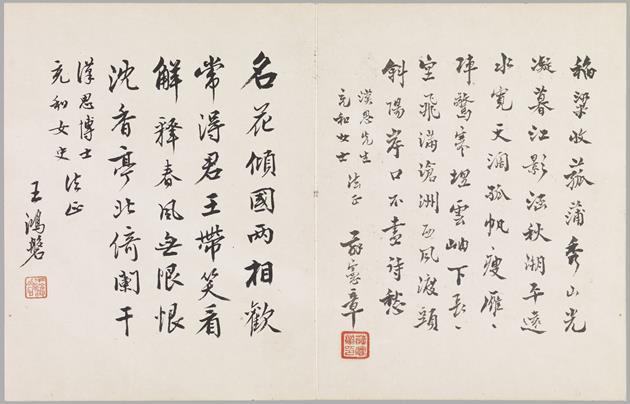 稻粱收菰蒲秀山光
凝暮江影涵秋潮平遠
水寬天濶孤帆瘦雁〻
陣驚寒埋雲岫下長〻
空飛滿滄洲西風渡頭
斜陽岸口不盡詩愁
漢思先生
充和女士 法正
憲章
名花傾國兩相歡
常得君王帶笑看
解釋春風無限恨
沈香亭北倚闌干
漢思博士
充和女史 法正
王鴻磐